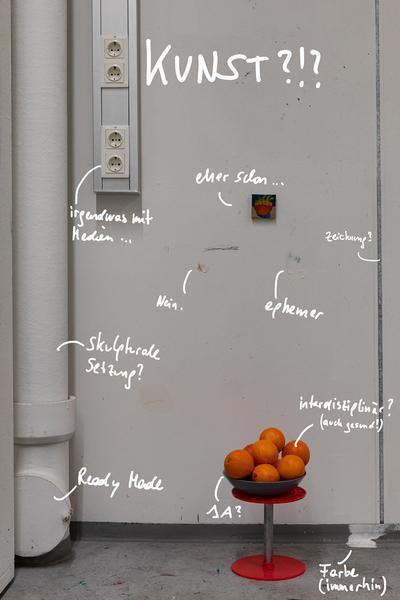 KUNST?!?
eher schon...
irgendwas mit
Medien...
Zeichnung?
Nein.
ephemer
Skulpturale
Setzung?
interdisziplinär?
(auch gesund!)
Ready Made
1A?
Farbe
(immerhin)